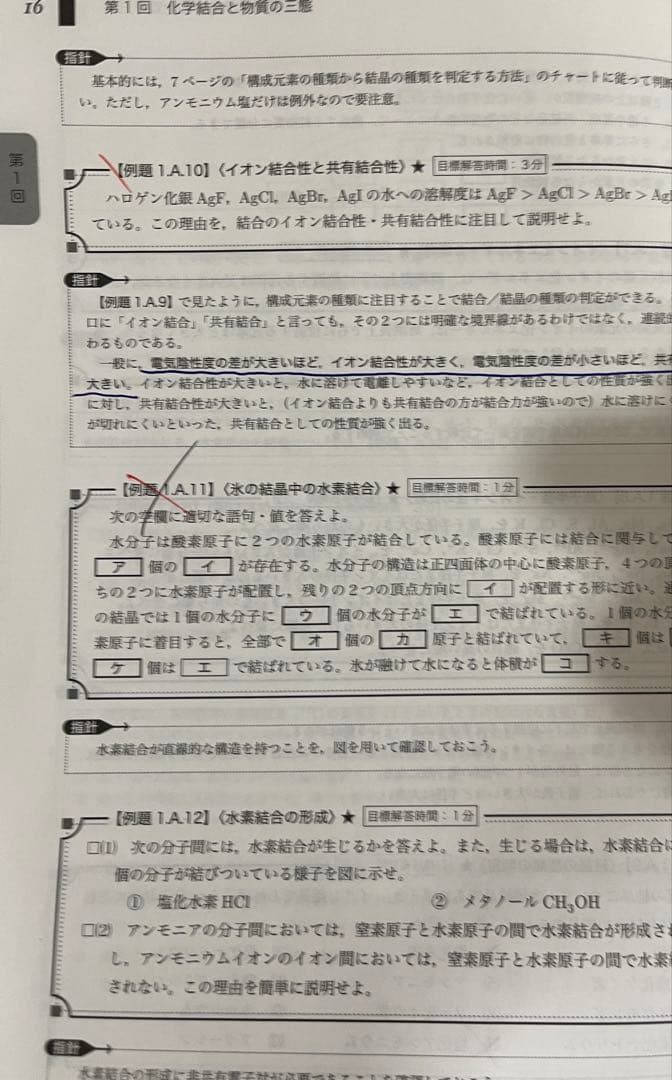 16 第1回 化学結合と物質の三態
指針
基本的には，7ページの「構成元素の種類から結晶の種類を判定する方法」のチャートに従って判断
い。ただし，アンモニウム塩だけは例外なので要注意。
第1回
【例題 1.A.10】〈イオン結合性と共有結合性〉★ 目標解答時間：3分
ハロゲン化銀 AgF，AgCl，AgBr，AgI の水への溶解度は AgF＞AgCl＞AgBr＞AgI
ている。この理由を，結合のイオン結合性・共有結合性に注目して説明せよ。
指針
【例題 1.A.9】で見たように，構成元素の種類に注目することで結合／結晶の種類の判定ができる。
口に「イオン結合」「共有結合」と言っても，その2つには明確な境界線があるわけではなく，連続
わるものである。
一般に，電気陰性度の差が大きいほど，イオン結合性が大きく，電気陰性度の差が小さいほど，共
大きい。イオン結合性が大きいと，水に溶けて電離しやすいなど，イオン結合としての性質が強く出
に対し，共有結合性が大きいと，（イオン結合よりも共有結合の方が結合力が強いので）水に溶けに
が切れにくいといった，共有結合としての性質が強く出る。
【例題 1.A.11】〈氷の結晶中の水素結合〉★ 目標解答時間：1分
次の空欄に適切な語句・値を答えよ。
水分子は酸素原子に2つの水素原子が結合している。酸素原子には結合に関与して
ア 個の イ が存在する。水分子の構造は正四面体の中心に酸素原子，4つの頂
ちの2つに水素原子が配置し，残りの2つの頂点方向に イ が配置する形に近い。
の結晶では1個の水分子に ウ 個の水分子が エ で結ばれている。1個の水分
素原子に着目すると，全部で オ 個の カ 原子と結ばれていて， キ 個は
ケ 個は エ で結ばれている。氷が融けて水になると体積が コ する。
指針
水素結合が直線的な構造を持つことを，図を用いて確認しておこう。
【例題 1.A.12】〈水素結合の形成〉★ 目標解答時間：1分
□(1) 次の分子間には，水素結合が生じるかを答えよ。また，生じる場合は，水素結合に
個の分子が結びついている様子を図に示せ。
① 塩化水素 HCl ② メタノール CH₃OH
□(2) アンモニアの分子間においては，窒素原子と水素原子の間で水素結合が形成され
し，アンモニウムイオンのイオン間においては，窒素原子と水素原子の間で水素結
されない。この理由を簡単に説明せよ。
指針
水素結合の形成に非共有電子対が必要であることを確認しておこう